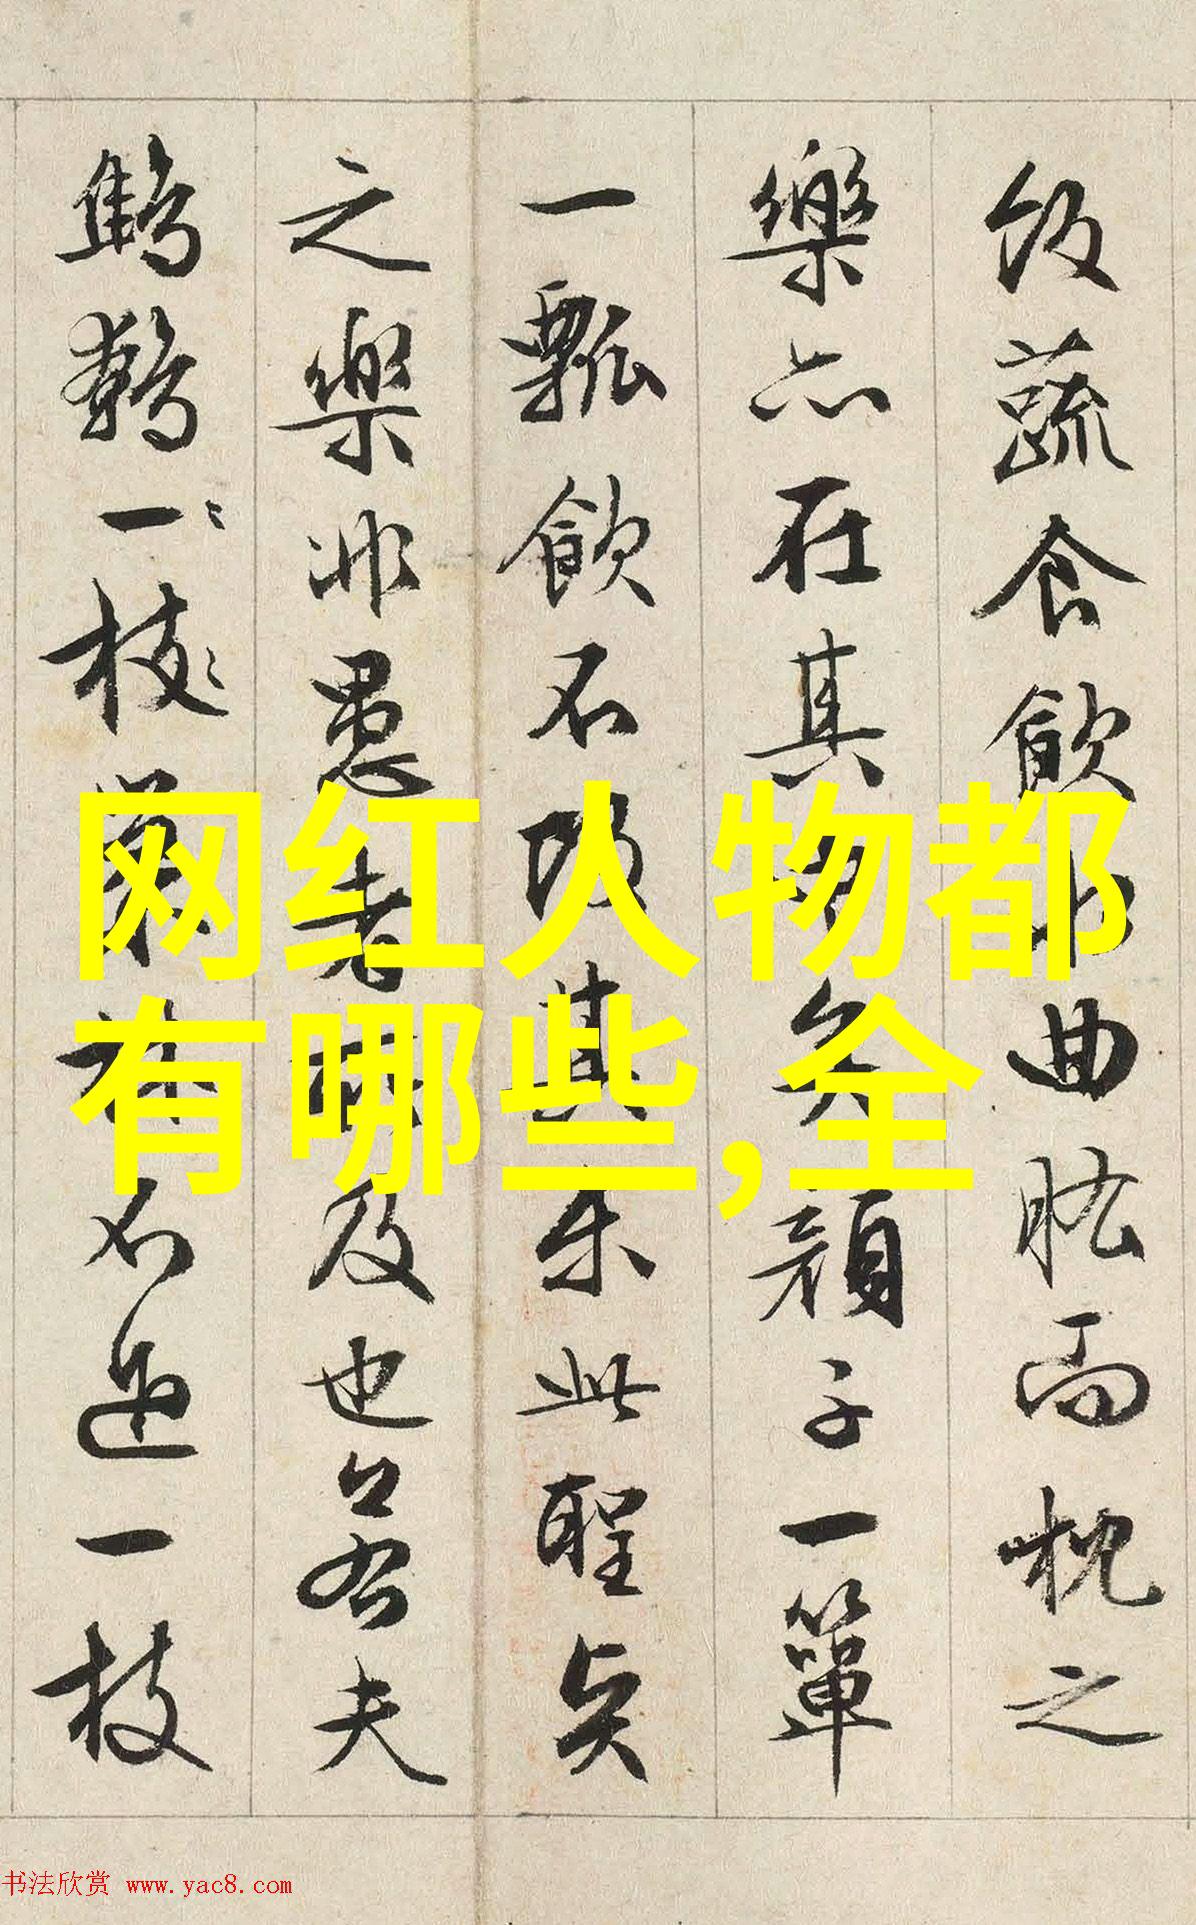 飯蔬食飲水曲肱而枕之
樂亦在其中矣顏子一簞
一瓢飲不改其樂此聖賢
之樂非愚者所及也若夫
鷦鷯一〻枝〻巢林不過一枝
网红人物都
有哪些,全
书法欣赏 www.yac8.com